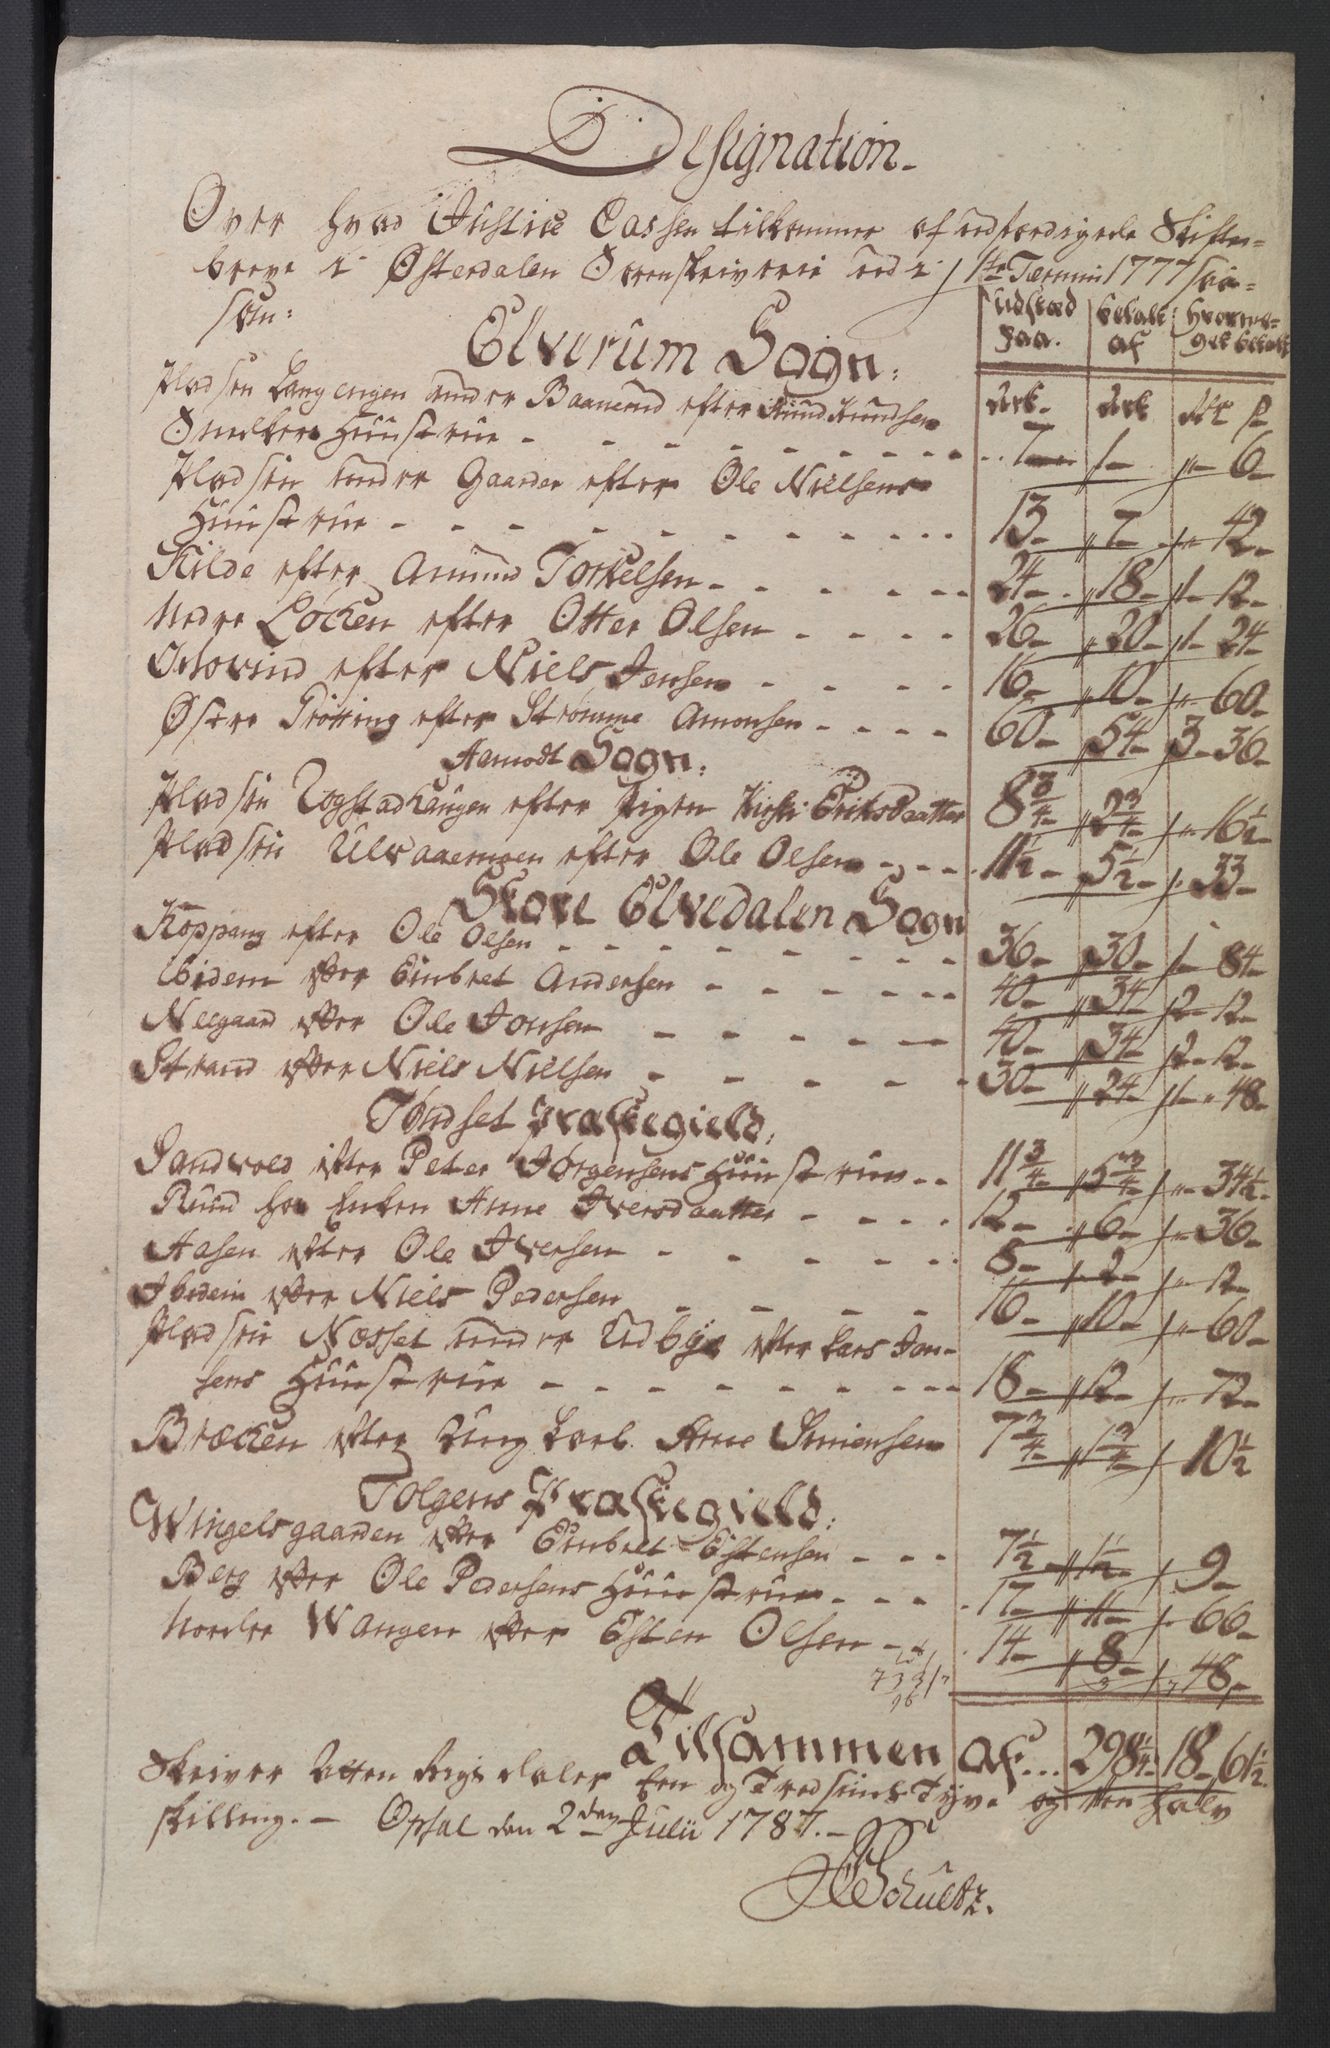 Designation.
Over hvad Justice Cassen tilkommer af udfærdigede Skifte-
breve i Østerdalens Sorenskriverie udi 1ste Termin 1777 saa-
som:
udstæd paa. | betalt af | hvorme- get betalt
Elverum Sogn:
Ark. | Ark | Rdr s
Pladsen Langengen under Baanerud efter Knud Knudsen
Smeders Huustrue - 7 - 1 - „ - 6 -
Pladsen under Gaarder efter Ole Nielsens
Huustrue - 13 - 7 - „ - 42 -
Kilde efter Amund Torkelsen - 24 - 18 - 1 - 12 -
Nedre Løcken efter Otter Olsen - 26 - 20 - 1 - 24 -
Schovind efter Niels Jensen - 16 - 10 - „ - 60 -
Østre Prötting efter Strømme Amonsen - 60 - 54 - 3 - 36 -
Aamodt Sogn:
Pladsen Rogstadhaugen efter Pigen Kirsti Eriksdaatter 8 3/4 - 2 3/4 - „ - 16 1/2 -
Pladsen Ulvaaengen efter Ole Olsen - 11 1/2 - 5 1/2 - „ 33 -
Store Elvedalen Sogn
Koppang efter Ole Olsen - 36 - 30 - 1 - 84 -
Ibidem efter Embret Andersen - 40 - 34 - 2 - 12 -
Neegaard efter Ole Jonsen - 40 - 34 - 2 - 12 -
Strand efter Niels Nielsen - 30 - 24 - 1 - 48 -
Tøndset Præstegield:
Sandvold efter Peter Jørgensens Huustrue - 11 3/4 - 5 3/4 - „ - 34 1/2 -
Ruud hos Enken Anne Iversdaatter - 12 - 6 - „ - 36 -
Aasen efter Ole Iversen - 8 - 2 - „ - 12 -
Ibidem efter Niels Pedersen - 16 - 10 - „ - 60 -
Pladsen Næsset under Udbye efter Lars Jon-
sens Huustrue - 18 - 12 - „ - 72 -
Bræcken efter Ung Karl Arne Simensen 7 3/4 - 1 3/4 - 10 1/2
Tolgens Præstegield:
Wingelsgaarden efter Embret Estensen - 7 1/2 - 1 1/2 - 9 -
Berg efter Ole Pedersens Huustrue - 17 - 11 - 66 -
Nordre Wangen efter Esten Olsen - 14 - 8 - 48 -
Tilsammen af... 298 1/4 - 18 - 61 1/2.
Skriver Atten Rigsdaler Een og Tredsinds Tyve og een halv
skilling. - Opsal den 2den Julii 1787. -
Schultz.